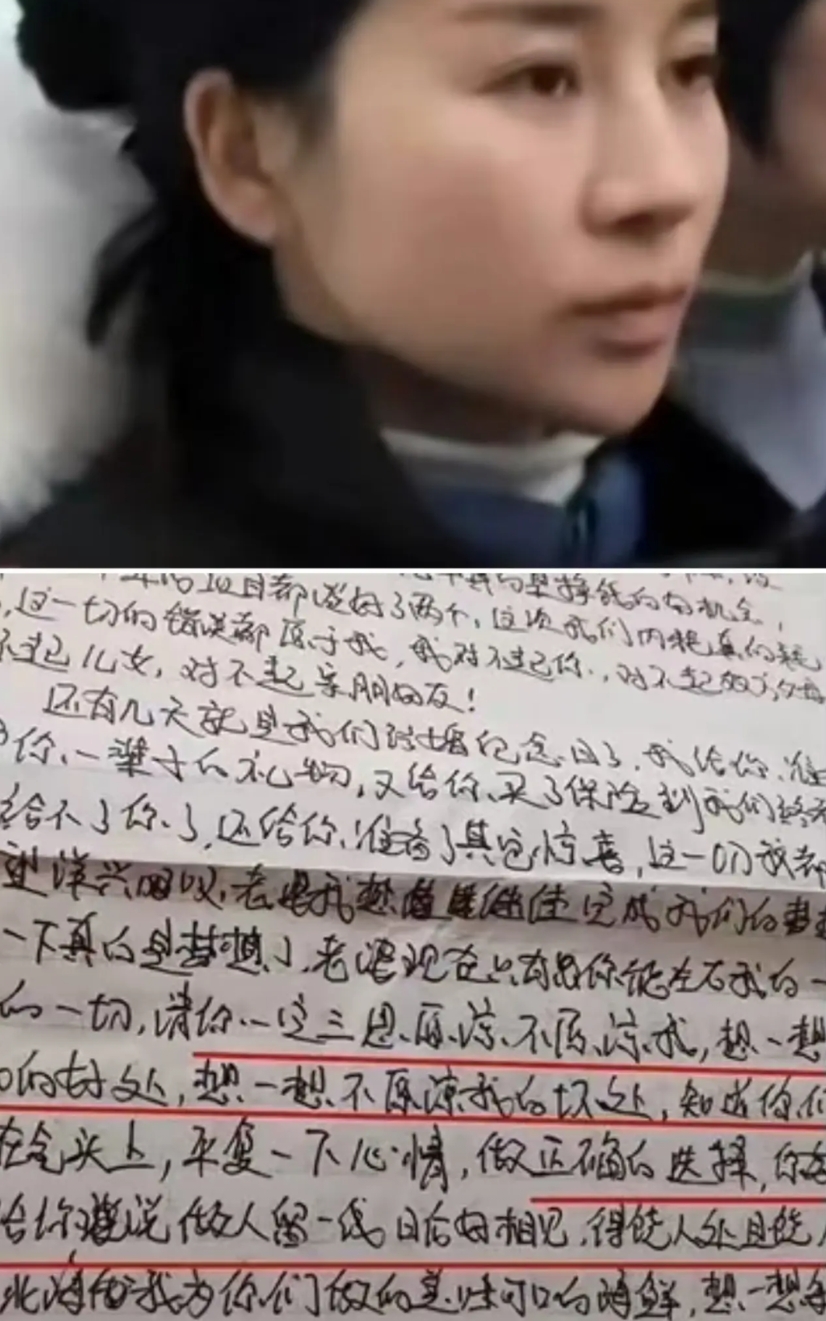 后项目都谈好了两个,这次我们内耗真的耗
,这一切的错误都原于我,我对不起你,,对不起双方父母
不起儿女,对不起亲朋好友!
还有几天就是我们结婚纪念日了,我给你准
你一辈子的礼物,又给你买了保险到我们终
给不了你了,还给你准备了其它惊喜,这一切我都
望洋兴叹,老婆我想继续完成我们的梦想
一下真的是梦想了,老婆现在只有你能左右我的一
的一切,请你一定三思,原谅不原谅我,想一想
的好处,想一想不原谅我的坏处,知道你们
在气头上,平复一下心情,做正确的选择,你
给你说做人留一线日后好相见,得饶人处且饶人
北海我为你们做的美味可口的海鲜,想一想